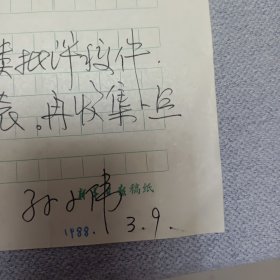 类批评稿件.
表。再收集一点
孙小陆
稿纸
1988. 3.9.